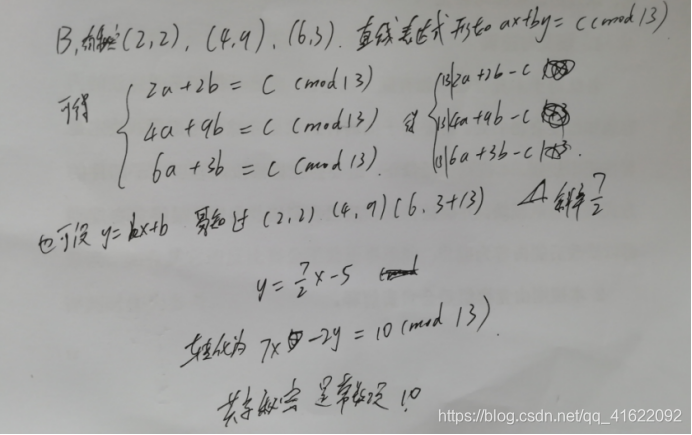 B, (2,2), (4,9), (6,3). 直线表达式形如 ax+by = c (mod 13)
可得 { 2a+2b = c (mod 13)
4a+9b = c (mod 13)
6a+3b = c (mod 13).
{ 13|2a+2b-c
13|4a+9b-c
13|6a+3b-c
也可设 y=kx+b 易知过 (2,2) (4,9) (6, 3+13) 斜率 7/2
y = 7/2 x - 5
转化为 7x-2y = 10 (mod 13).
共享秘密是常数项 10
https://blog.csdn.net/qq_41622092